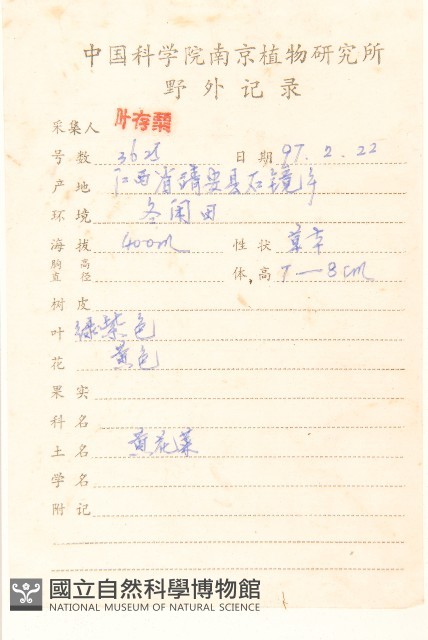 中国科学院南京植物研究所
野外记录
采集人 叶存粟
号数 3625 日期 97.2.22
产地 江西省靖安县石镜
环境 冬闲田
海拔 400m 性状 草本
胸高直径 体,高 7—8cm
树皮
叶 绿紫色
花 黄色
果实
科名
土名 黄花菜
学名
附记
國立自然科學博物館
NATIONAL MUSEUM OF NATURAL SCIENCE